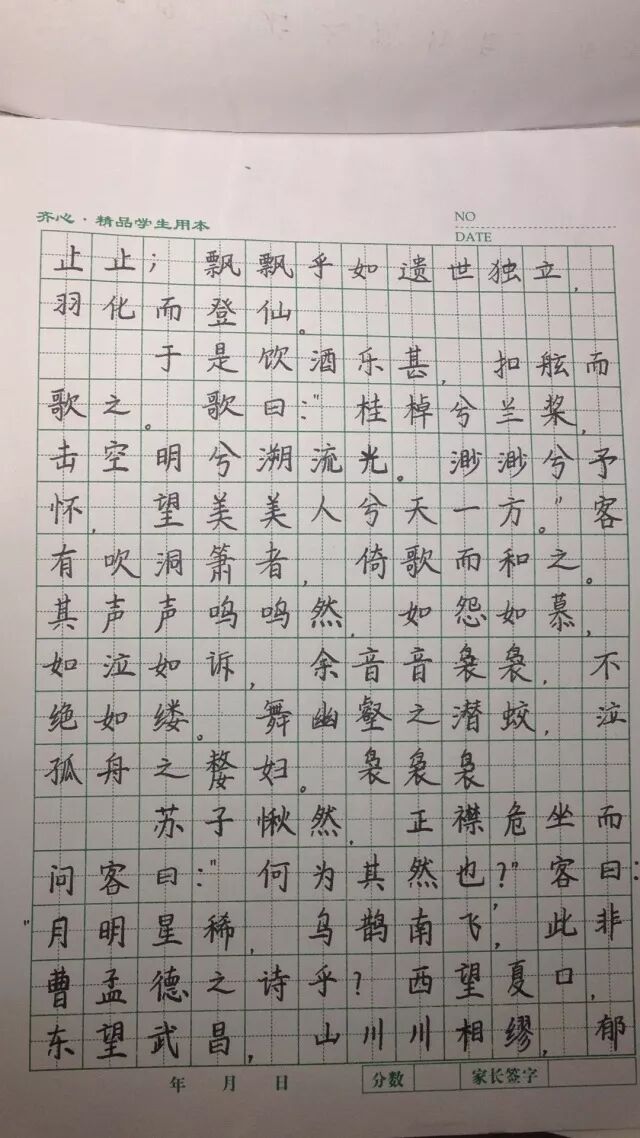 齐心·精品学生用本
NO
DATE
止止；飘飘乎如遗世独立，
羽化而登仙。
于是饮酒乐甚，扣舷而
歌之。歌曰：“桂棹兮兰桨，
击空明兮溯流光。渺渺兮予
怀，望美美人兮天一方。”客
有吹洞箫者，倚歌而和之。
其声声呜呜然，如怨如慕，
如泣如诉，余音音袅袅，不
绝如缕。舞幽壑之潜蛟，泣
孤舟之嫠妇。袅袅袅
苏子愀然，正襟危坐而
问客曰：“何为其然也？”客曰：
“月明星稀，乌鹊南飞，’此非
曹孟德之诗乎？西望夏口，
东望武昌，山川川相缪，郁
年 月 日 分数 家长签字